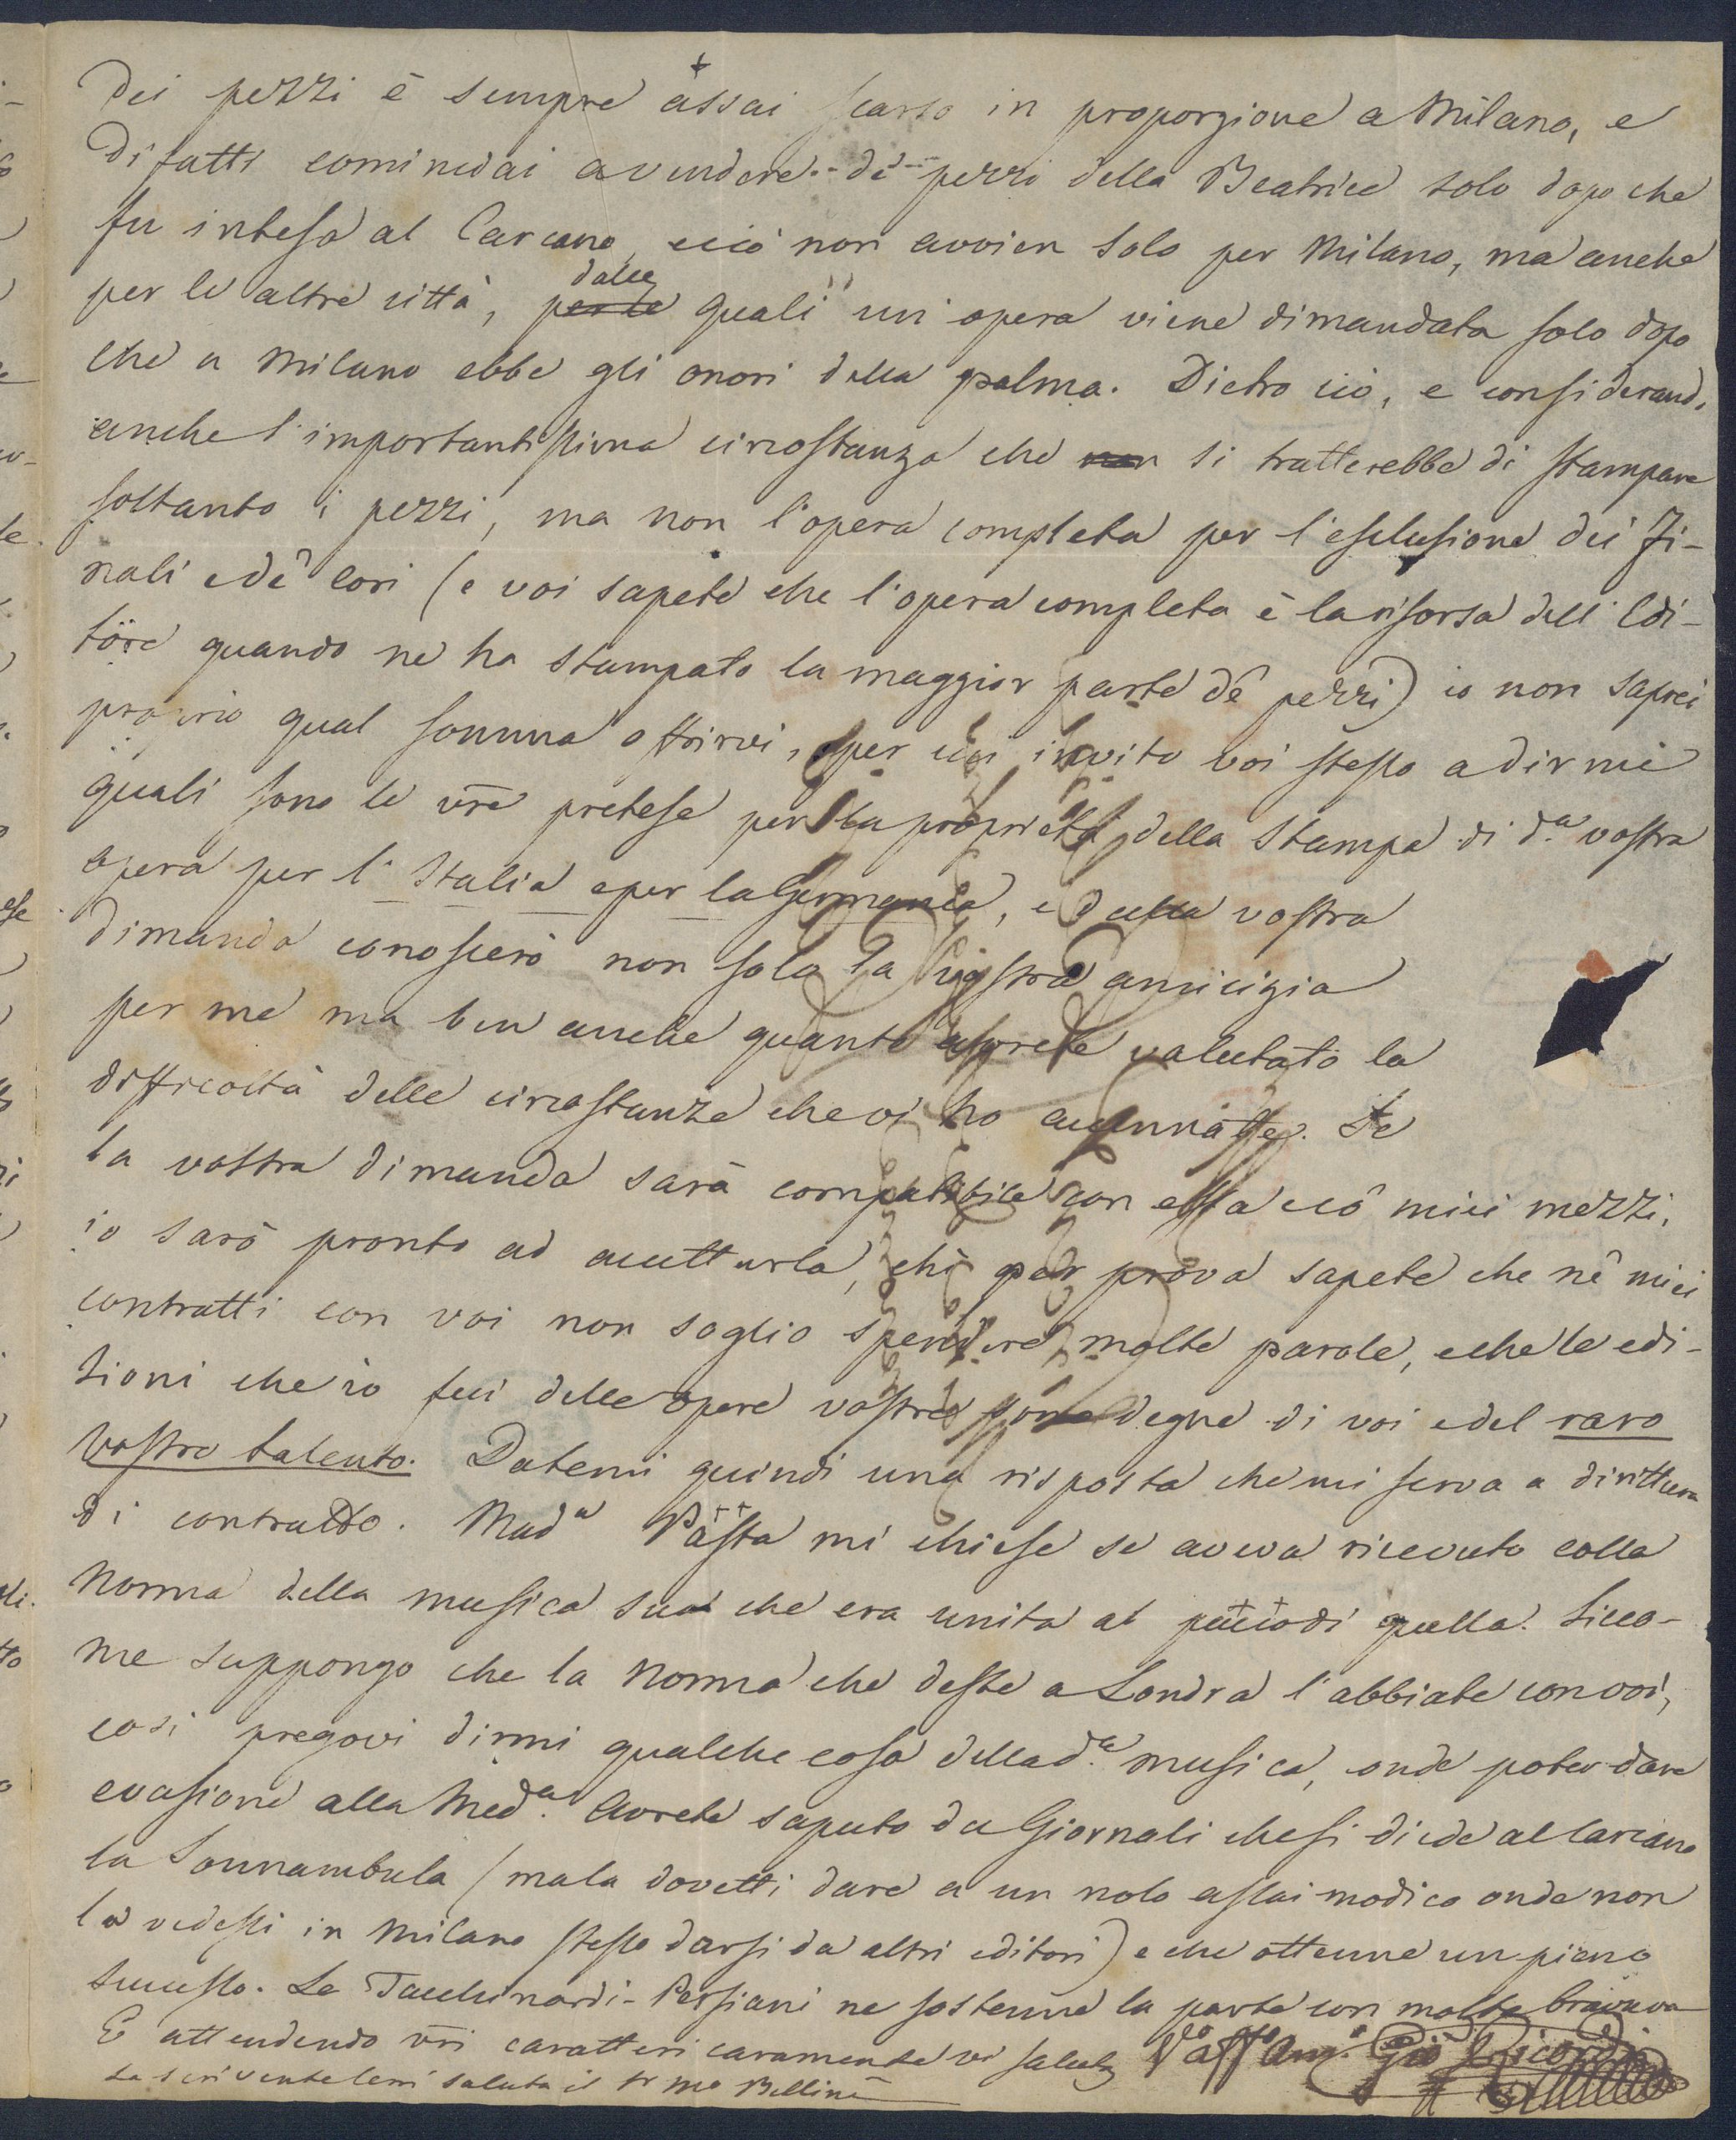 Dei pezzi è sempre assai scarso in proporzione a Milano, e
difatti cominciai a vendere de' pezzi della Beatrice solo dopo che
fu intesa al Carcano, e ciò non avvien solo per Milano, ma anche
per le altre città, per le dalle quali un' opera viene dimandata solo dopo
che a Milano ebbe gli onori della palma. Dietro ciò, e considerand.
anche l'importantissima circostanza che non si tratterebbe di stampare
soltanto i pezzi, ma non l'opera completa per l'esclusione dei Fi-
nali e de' Cori (e voi sapete che l'opera completa è la risorsa dell' Edi-
tore quando ne ha stampato la maggior parte de' pezzi) io non saprei
proprio qual somma offrirvi, per cui invito voi stesso a dirmi
quali sono le vr̃e pretese per la proprietà della stampa di d.ª vostra
opera per l' Italia e per la Germania, e dalla vostra
dimanda conoscerò non solo la vostra amicizia
per me ma ben anche quanto avrete valutato la
difficoltà delle circostanze che vi ho accennate. Se
la vostra dimanda sarà compatibile con essa e co' miei mezzi,
io sarò pronto ad accettarla, chè per prova sapete che ne' miei
contratti con voi non soglio spendere molte parole, e che le edi-
zioni che io feci delle opere vostre sono degne di voi e del raro
vostro talento. Datemi quindi una risposta che mi serva a dirittura
di contratto. Mad.ª Pasta mi chiese se aveva ricevuto colla
Norma della musica sua che era unita al pacco di quella. Sicco-
me suppongo che la Norma che deste a Londra l'abbiate con voi,
così pregovi dirmi qualche cosa della d.ª musica, onde poter dare
evasione alla Med.ª Avrete saputo da Giornali che si diede al Carcano
la Sonnambula (ma la dovetti dare a un nolo assai modico onde non
la vedessi in Milano stesso darsi da altri editori) e che ottenne un pieno
successo. La Tacchinardi-Persiani ne sostenne la parte con molta bravura
E attendendo vr̃i caratteri caramente vi saluto V.º aff.º Am.º Gio Ricordi
Lo scrivente saluta il Bellini